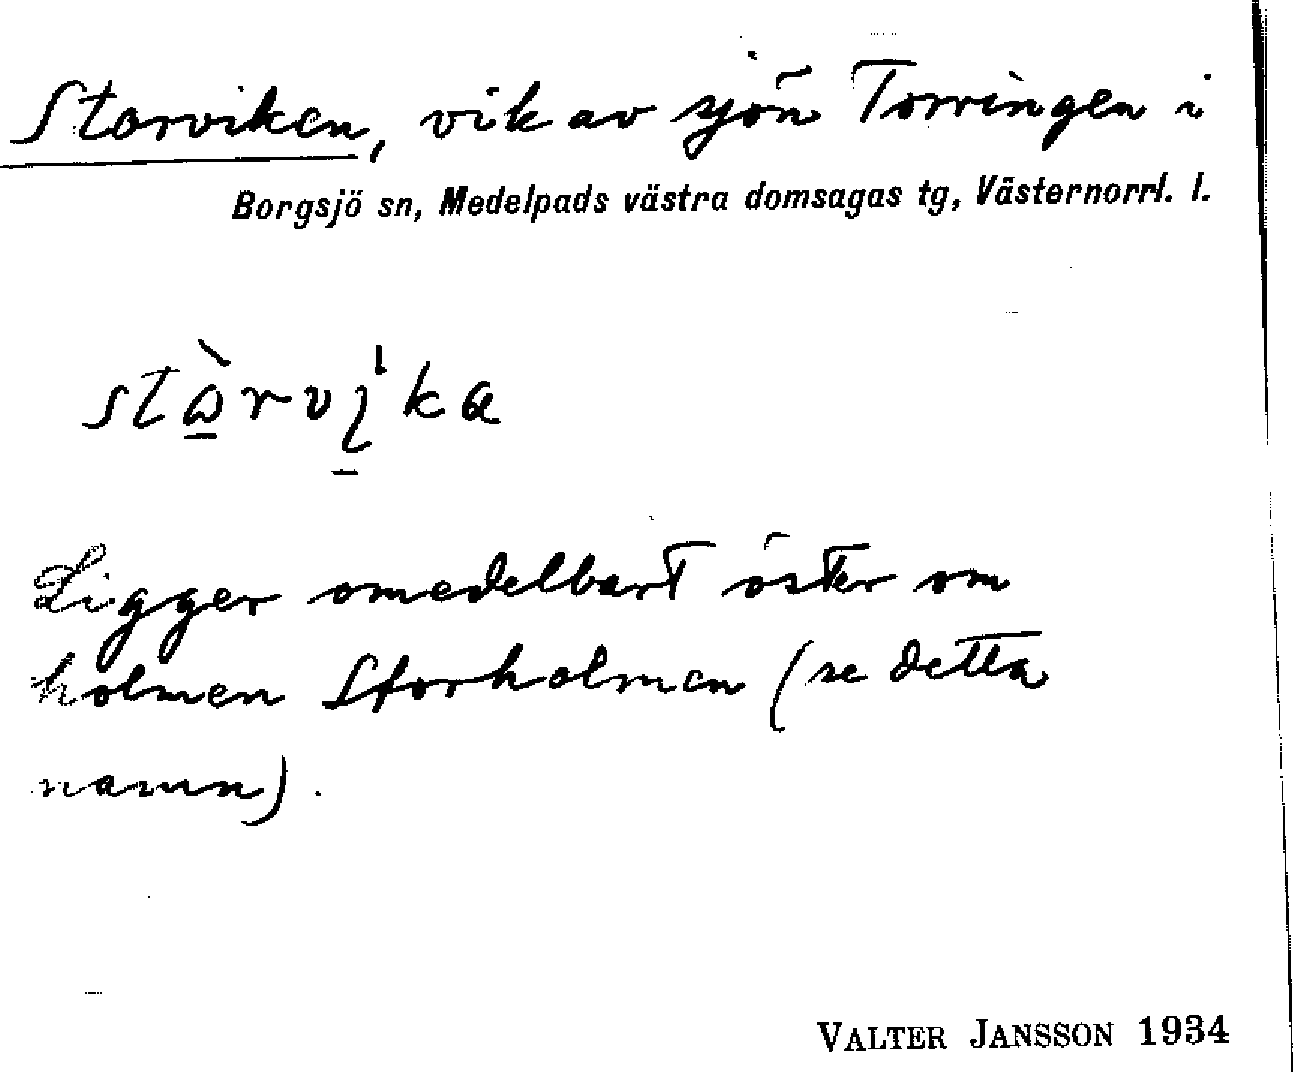 Storviken, vik av sjön Torringen i
Borgsjö sn, Medelpads västra domsagas tg, Västernorrl. l.
Ligger omedelbart öster om
holmen Storholmen (se detta
namn).
VALTER JANSSON 1934